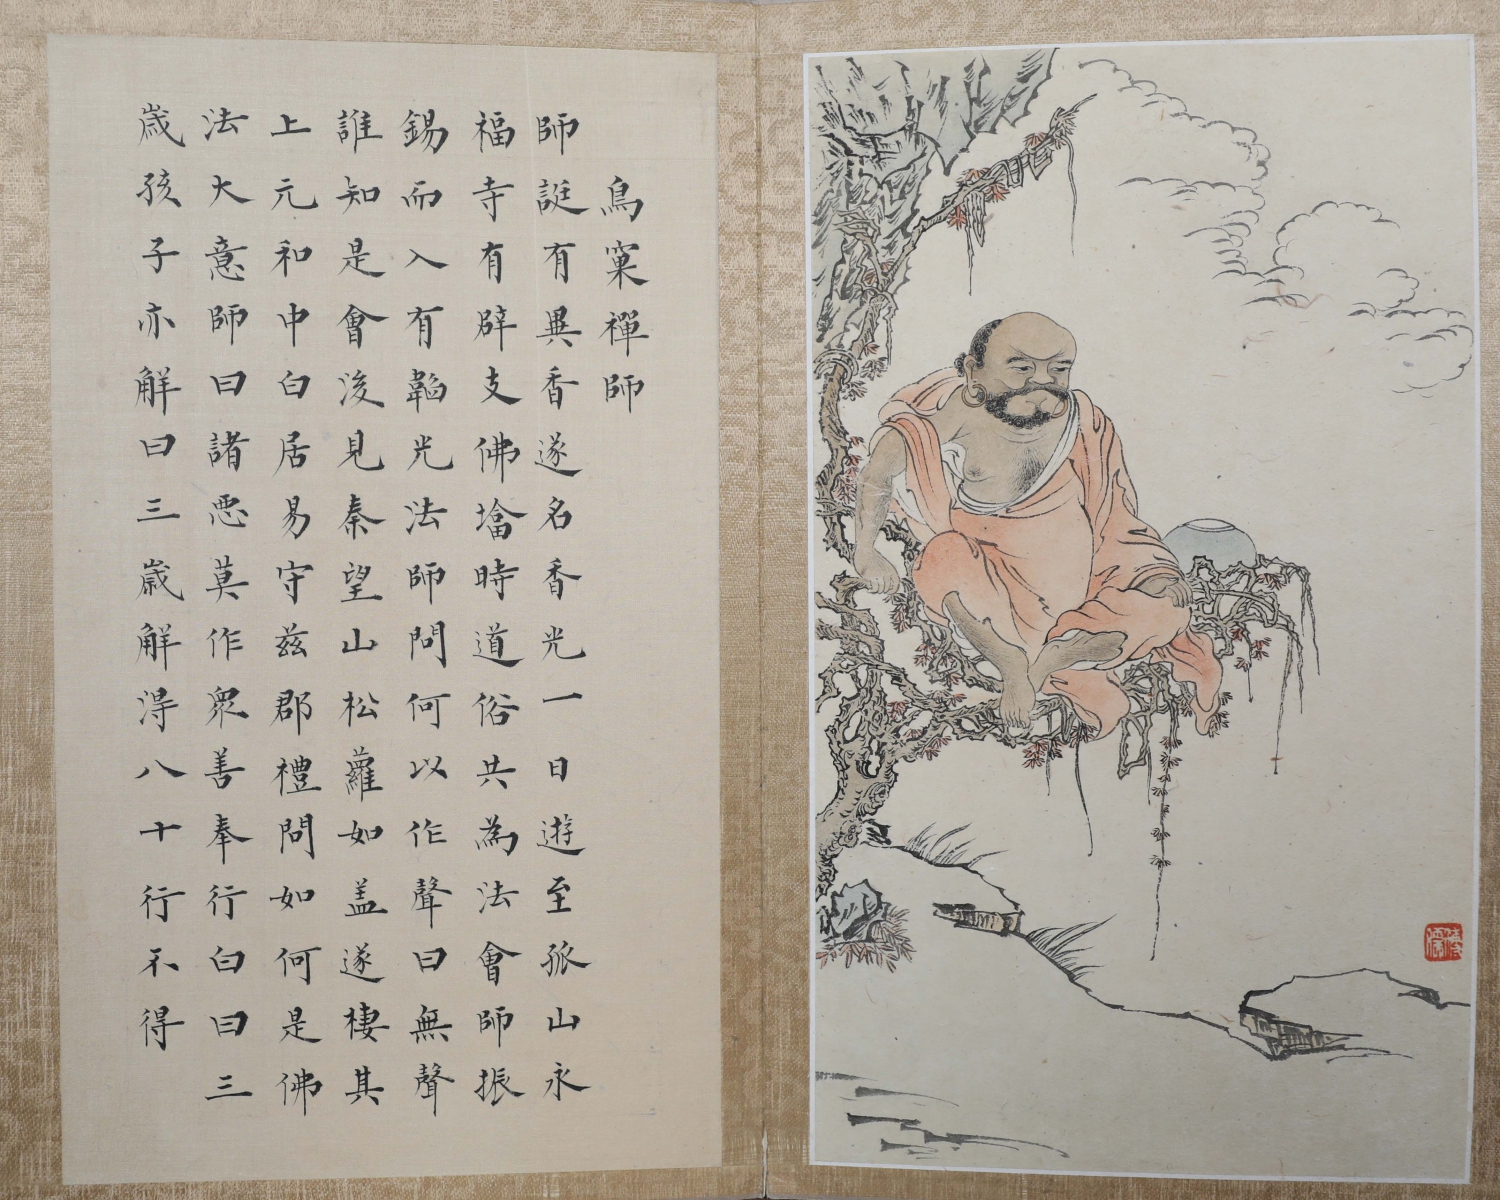 鳥窠禪師
師誕有異香遂名香光一日遊至孤山永
福寺有辟支佛墖時道俗共為法會師振
錫而入有韜光法師問何以作聲曰無聲
誰知是會後見秦望山松蘿如盖遂棲其
上元和中白居易守兹郡禮問如何是佛
法大意師曰諸惡莫作衆善奉行白曰三
歳孩子亦解曰三歳解得八十行不得